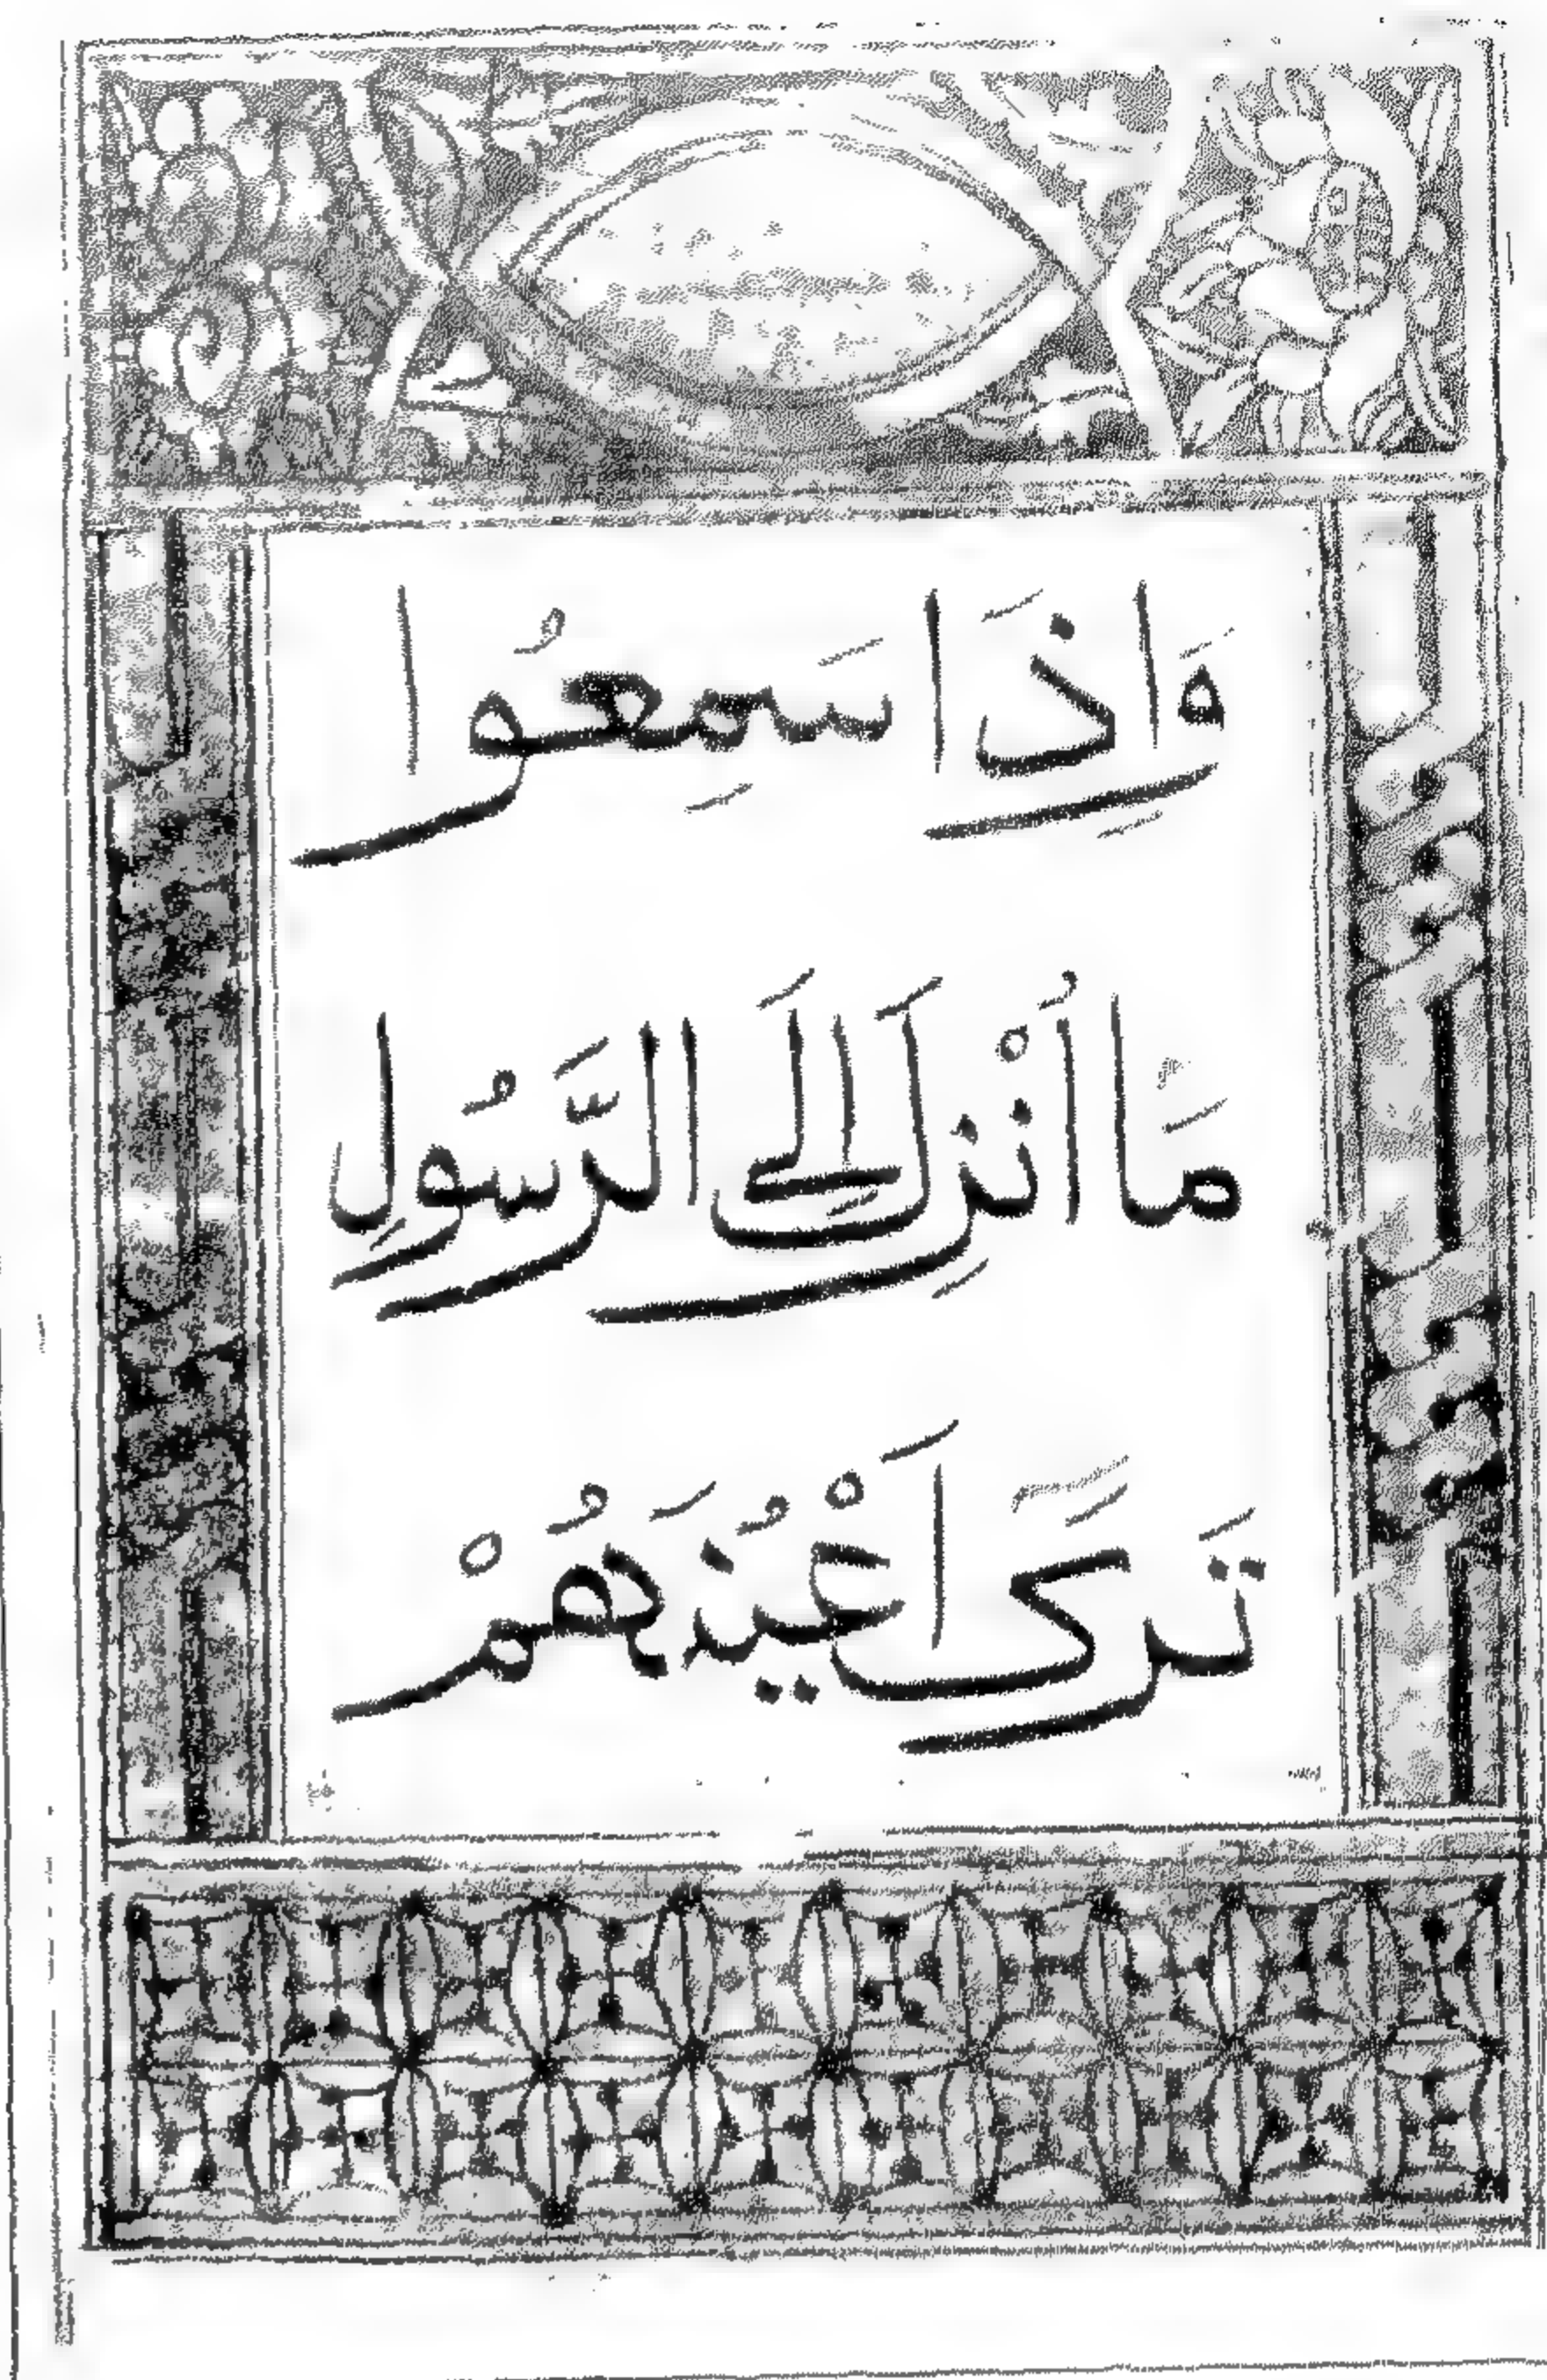 وَاِذَا سَمِعُوا
مَا اُنْزِلَ اِلَى الرَّسُولِ
تَرَىٓ اَعْيُنَهُمْ